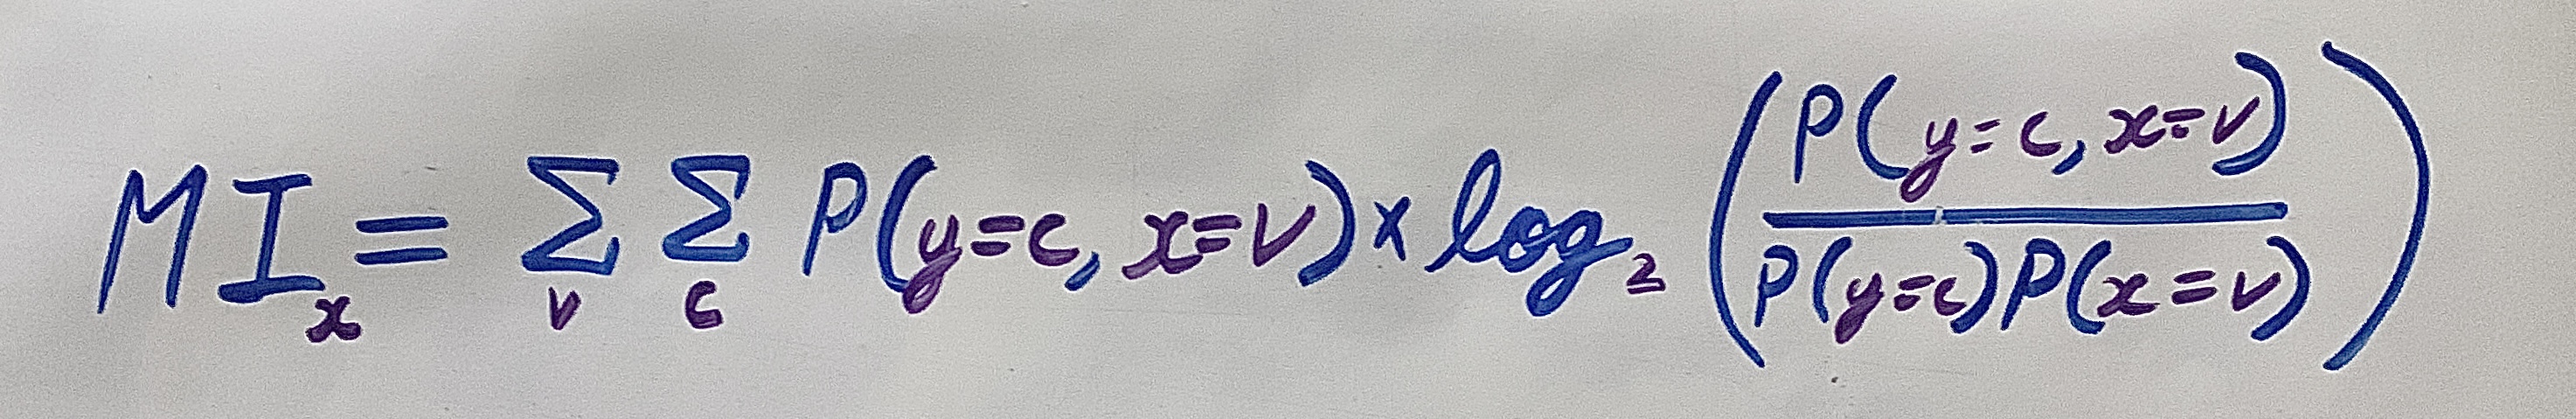 MI_x = Σ_v Σ_c P(y=c, x=v) × log_2 (P(y=c, x=v) / P(y=c)P(x=v))